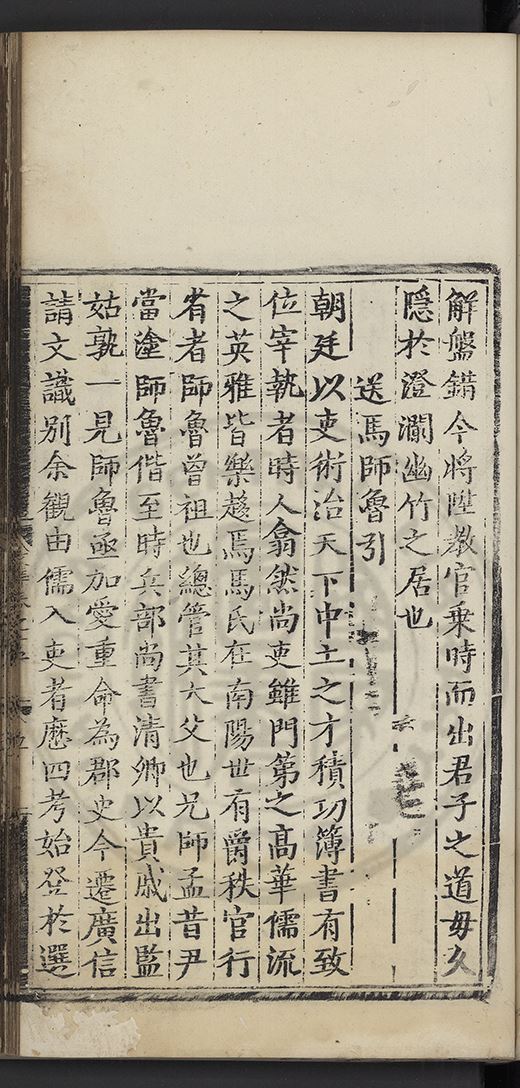 解盤錯今將陞教官乗時而出君子之道毋久
隱於澄瀾幽竹之居也
送馬師魯引
朝廷以吏術治天下中土之才積功簿書有致
位宰執者時人翕然尚吏雖門第之高華儒流
之英雅皆樂趍焉馬氏在南陽世有爵秩官行
省者師魯曾祖也總管其大父也兄師孟昔尹
當塗師魯偕至時兵部尚書清卿以貴戚出監
姑孰一見師魯亟加愛重命為郡史今遷廣信
請文識别余觀由儒入吏者歷四考始登於選